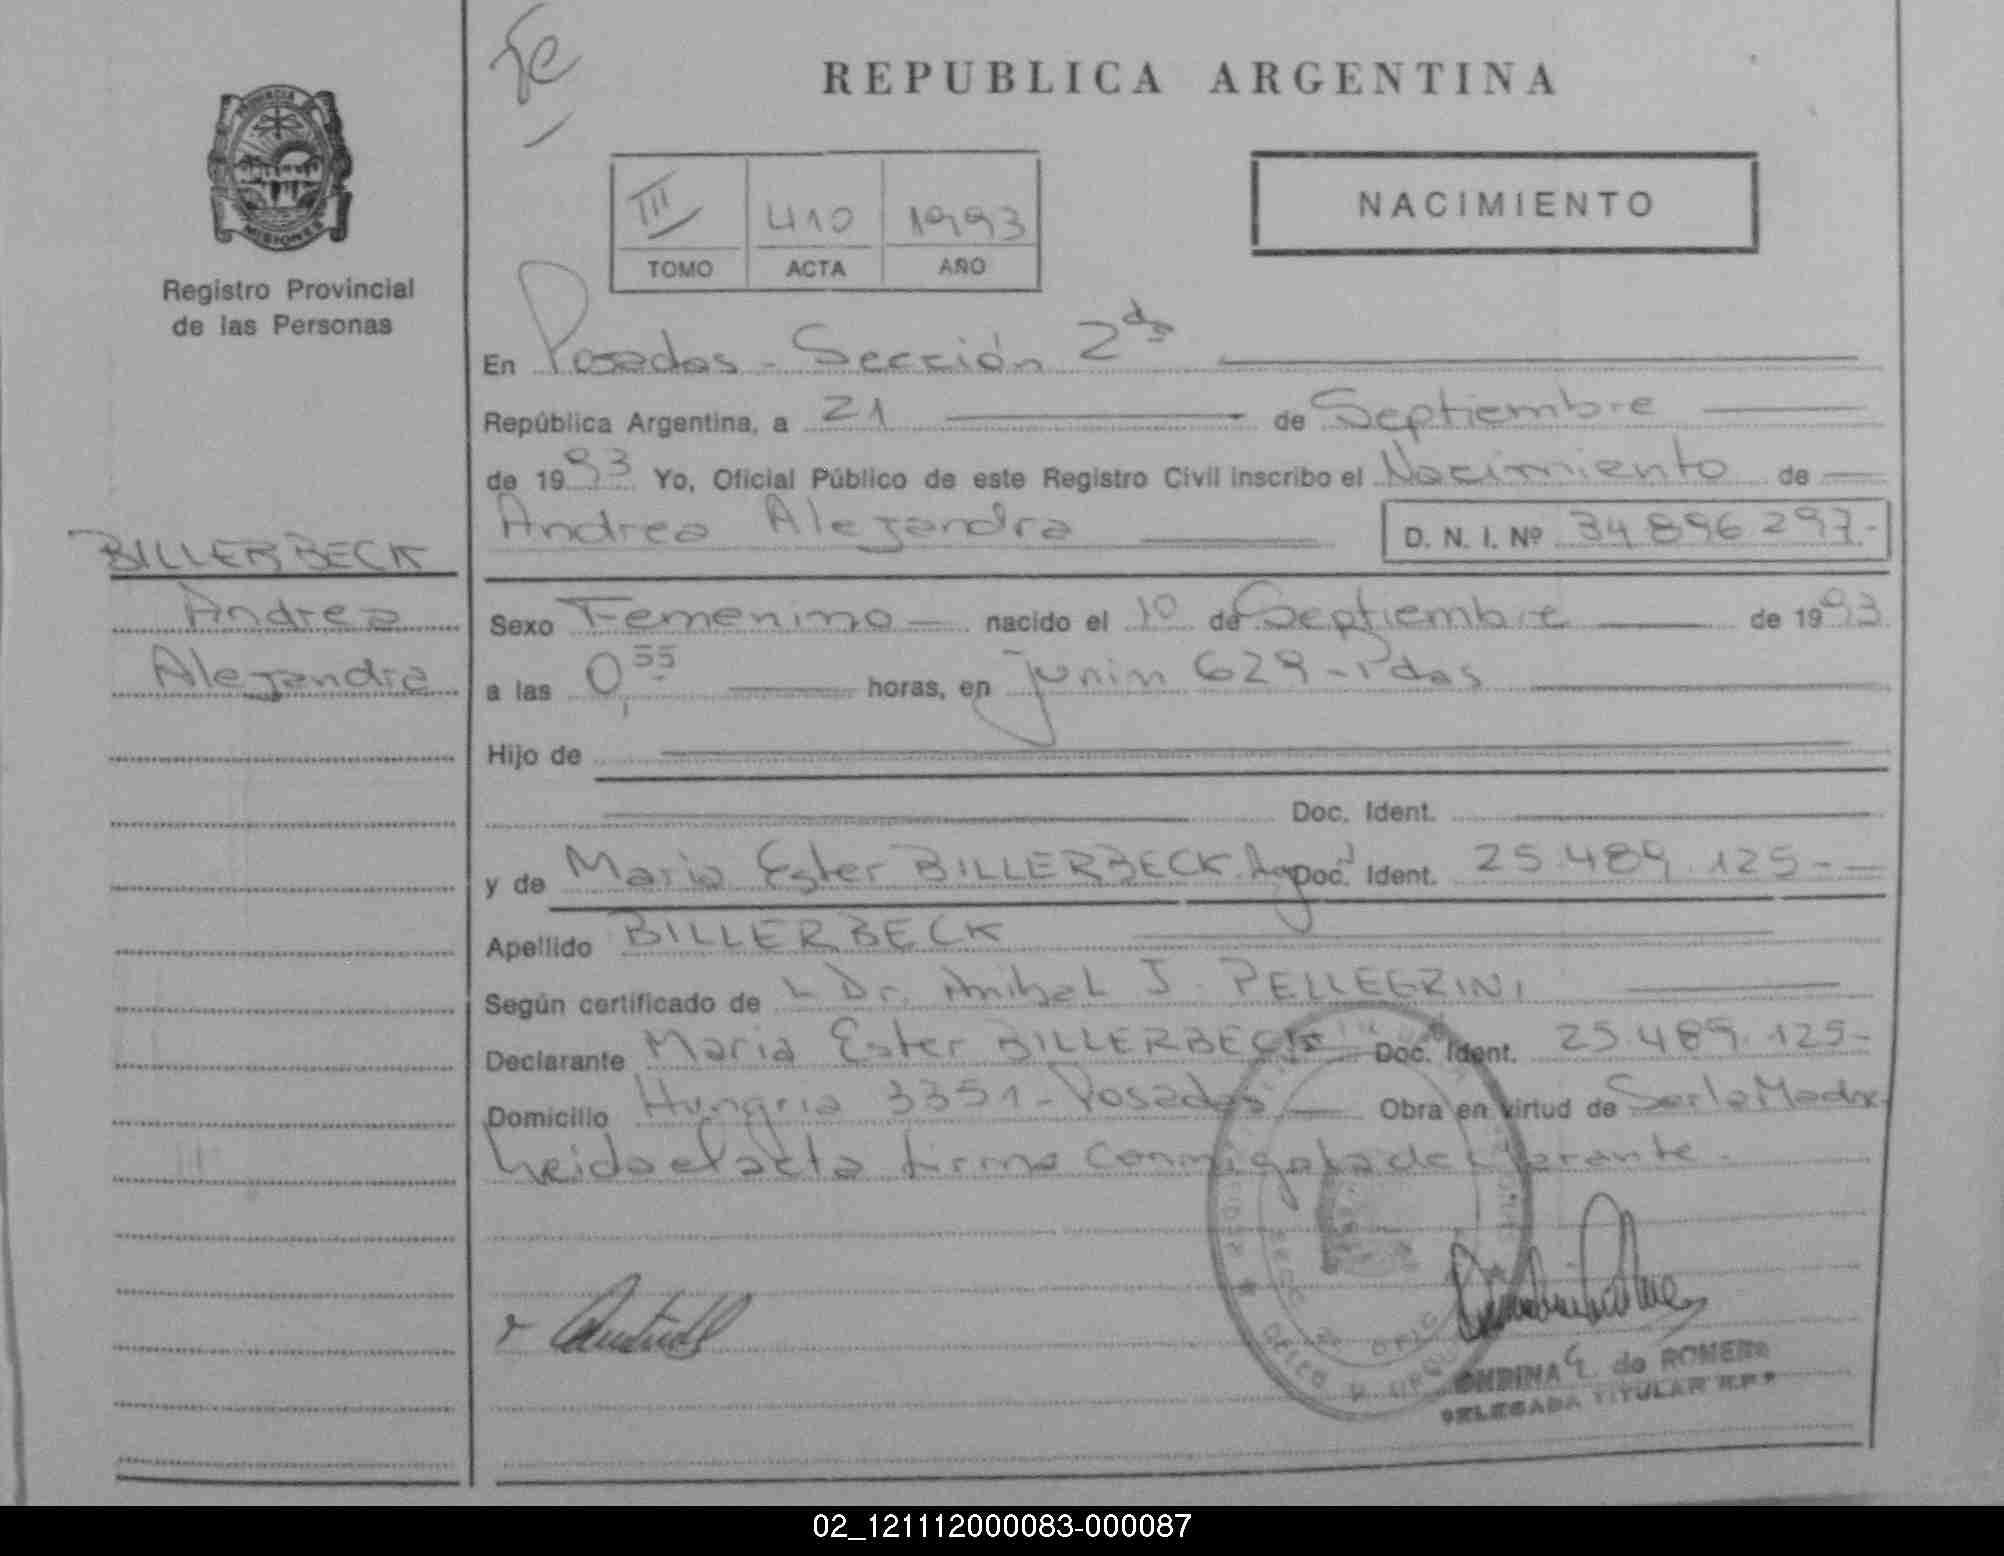 Fe
REPUBLICA ARGENTINA
PROVINCIA DE
MISIONES
Registro Provincial
de las Personas
III 410 1993
TOMO ACTA AÑO
NACIMIENTO
En Posadas - Sección 2da
República Argentina, a 21 de Septiembre
de 1993 Yo, Oficial Público de este Registro Civil inscribo el Nacimiento de
Andrea Alejandra D. N. I. Nº 34896297-
BILLERBECK
Andrea
Alejandra
Sexo Femenino - nacido el 10 de Septiembre de 1993
a las 0,55 horas, en Junin 629 - Pdas
Hijo de
Doc. Ident.
y de Maria Ester BILLERBECK Argd Doc. Ident. 25.489.125-
Apellido BILLERBECK
Según certificado de L Dr. Anibal J. PELLEGRINI
Declarante Maria Ester BILLERBECK Doc. Ident. 25.489.125-
Domicilio Hungria 3351 - Posadas Obra en virtud de Ser la Madre
Leida el acta firma conmigo la declarante.
ONDINA E. de ROMERO
DELEGADA TITULAR R.P.P
02_121112000083-000087